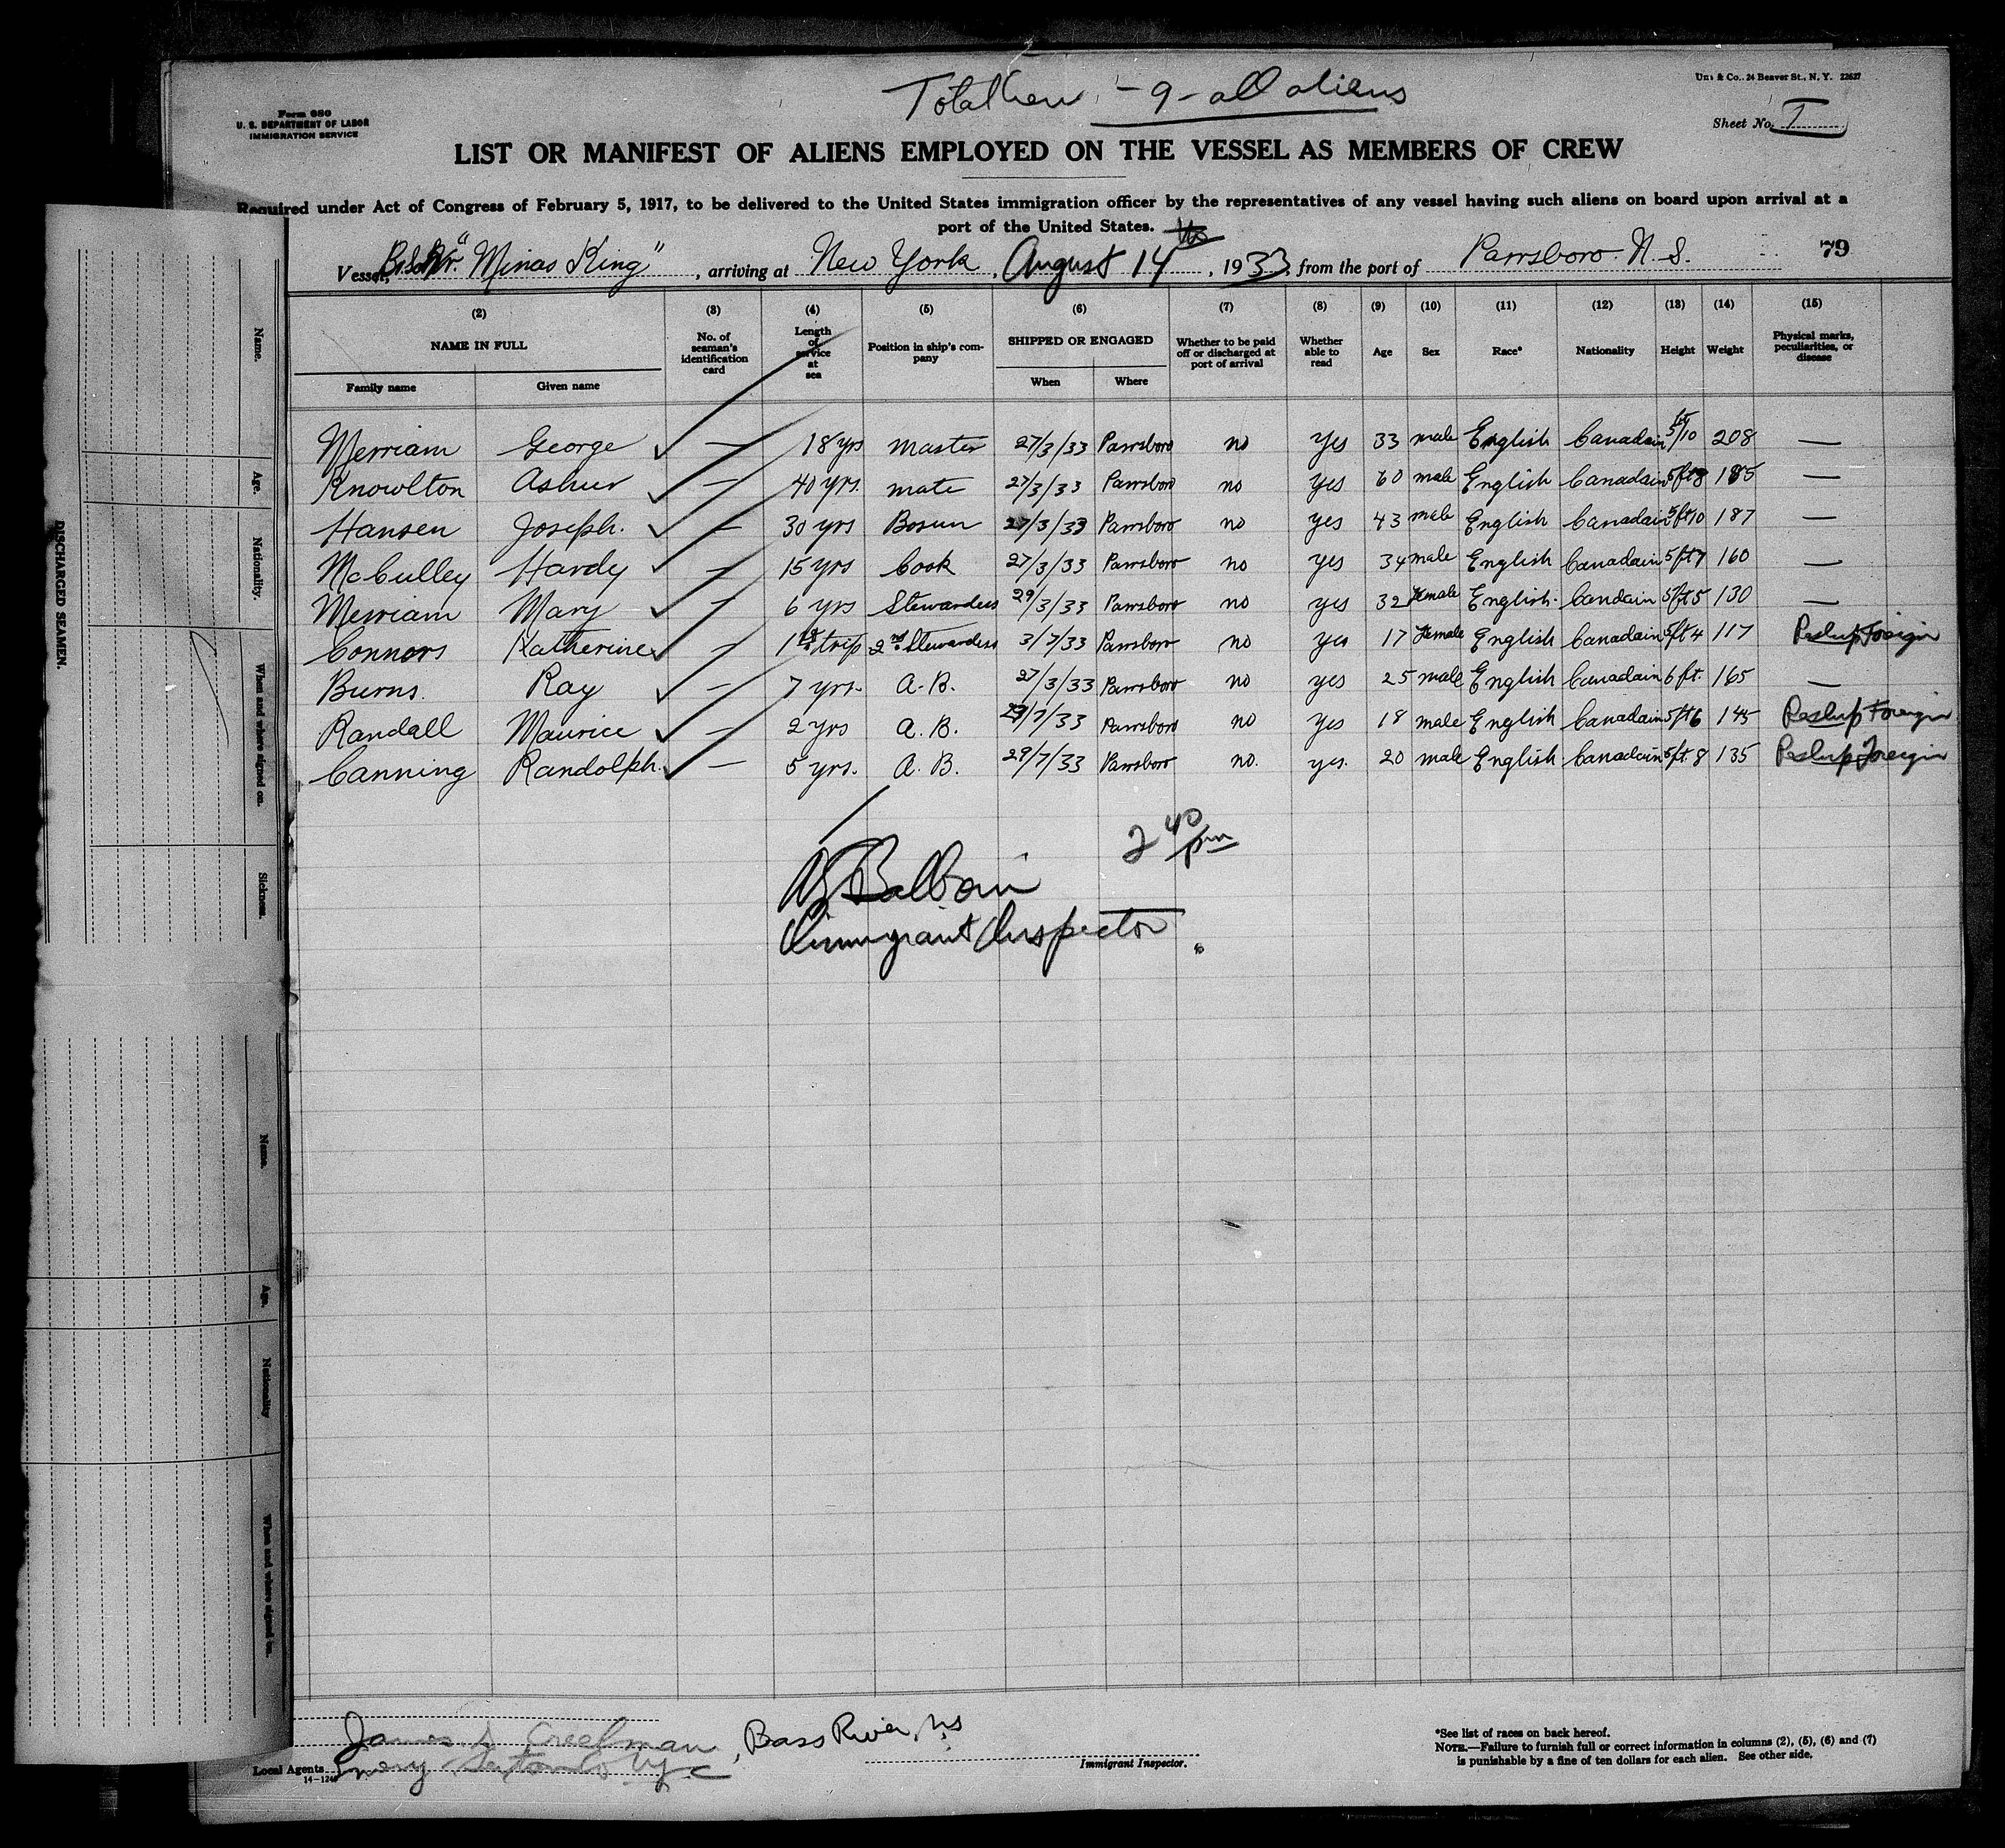 Total Crew - 9 - all aliens
Uni & Co., 24 Beaver St., N. Y. 22627
Form 680
U. S. DEPARTMENT OF LABOR
IMMIGRATION SERVICE
Sheet No. 1
LIST OR MANIFEST OF ALIENS EMPLOYED ON THE VESSEL AS MEMBERS OF CREW
Required under Act of Congress of February 5, 1917, to be delivered to the United States immigration officer by the representatives of any vessel having such aliens on board upon arrival at a
port of the United States.
Vessel, "Minas King", arriving at New York, August 14, 1933, from the port of Parrsboro N. S. 79
(2) (3) (4) (5) (6) (7) (8) (9) (10) (11) (12) (13) (14) (15)
NAME IN FULL No. of seaman's identification card Length of service at sea Position in ship's company SHIPPED OR ENGAGED Whether to be paid off or discharged at port of arrival Whether able to read Age Sex Race* Nationality Height Weight Physical marks, peculiarities, or disease
Family name Given name When Where
Merriam George — 18 yrs master 27/3/33 Parrsboro no yes 33 male English Canadain 5ft/10 208 —
Knowlton Ashur — 40 yrs. mate 27/3/33 Parrsboro no yes 60 male English Canadain 5ft8 185 —
Hansen Joseph. — 30 yrs Bosun 27/3/33 Parrsboro no yes 43 male English Canadain 5ft10 187 —
McCulley Hardy — 15 yrs Cook 27/3/33 Parrsboro no yes 34 male English Canadain 5ft7 160 —
Merriam Mary — 6 yrs Stewardess 29/3/33 Parrsboro no yes 32 female English. Candain 5ft5 130 —
Connors Katherine — 1st trip 2nd Stewardess 3/7/33 Parrsboro no yes 17 Female English Canadain 5ft4 117 Foreign
Burns. Ray — 7 yrs. A. B. 27/3/33 Parrsboro no yes 25 male English Canadain 6 ft. 165 —
Randall Maurice — 2 yrs A. B. /7/33 Parrsboro no yes 18 male English Canadain 5ft6 145 Foreign
Canning Randolph. — 5 yrs. A. B. 29/7/33 Parrsboro no. yes. 20 male English Canadain 5ft. 8 135 Foreign
2 40 pm
Immigrant Inspector
James Creelman, Bass River, NS
Local Agents
14-124
Immigrant Inspector.
*See list of races on back hereof.
NOTE.—Failure to furnish full or correct information in columns (2), (5), (6) and (7)
is punishable by a fine of ten dollars for each alien. See other side.
DISCHARGED SEAMEN.
Name.
Age.
Nationality.
When and where signed on.
Sickness.
Name.
Age.
Nationality
When and where signed on.